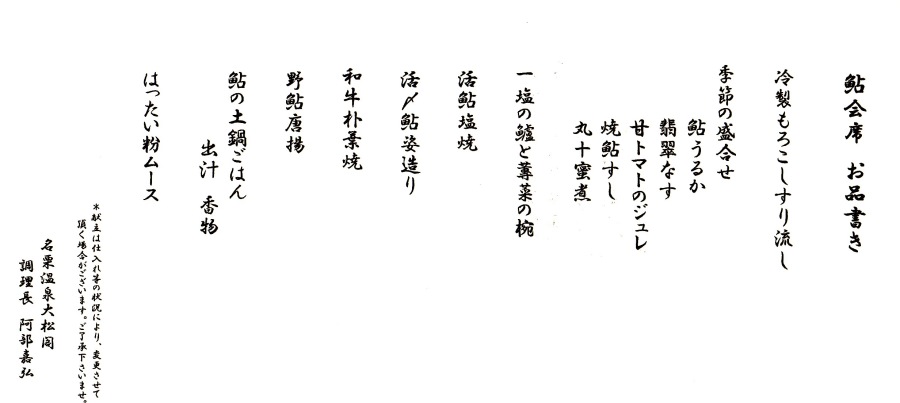 鮎会席 お品書き
冷製もろこしすり流し
季節の盛合せ
鮎うるか
翡翠なす
甘トマトのジュレ
焼鮎すし
丸十蜜煮
一塩の鱸と蓴菜の椀
活鮎塩焼
活〆鮎姿造り
和牛朴葉焼
野鮎唐揚
鮎の土鍋ごはん
出汁 香物
はったい粉ムース
*献立は仕入れ等の状況により、変更させて
頂く場合がございます。ご了承下さいませ。
名栗温泉大松閣
調理長 阿部嘉弘